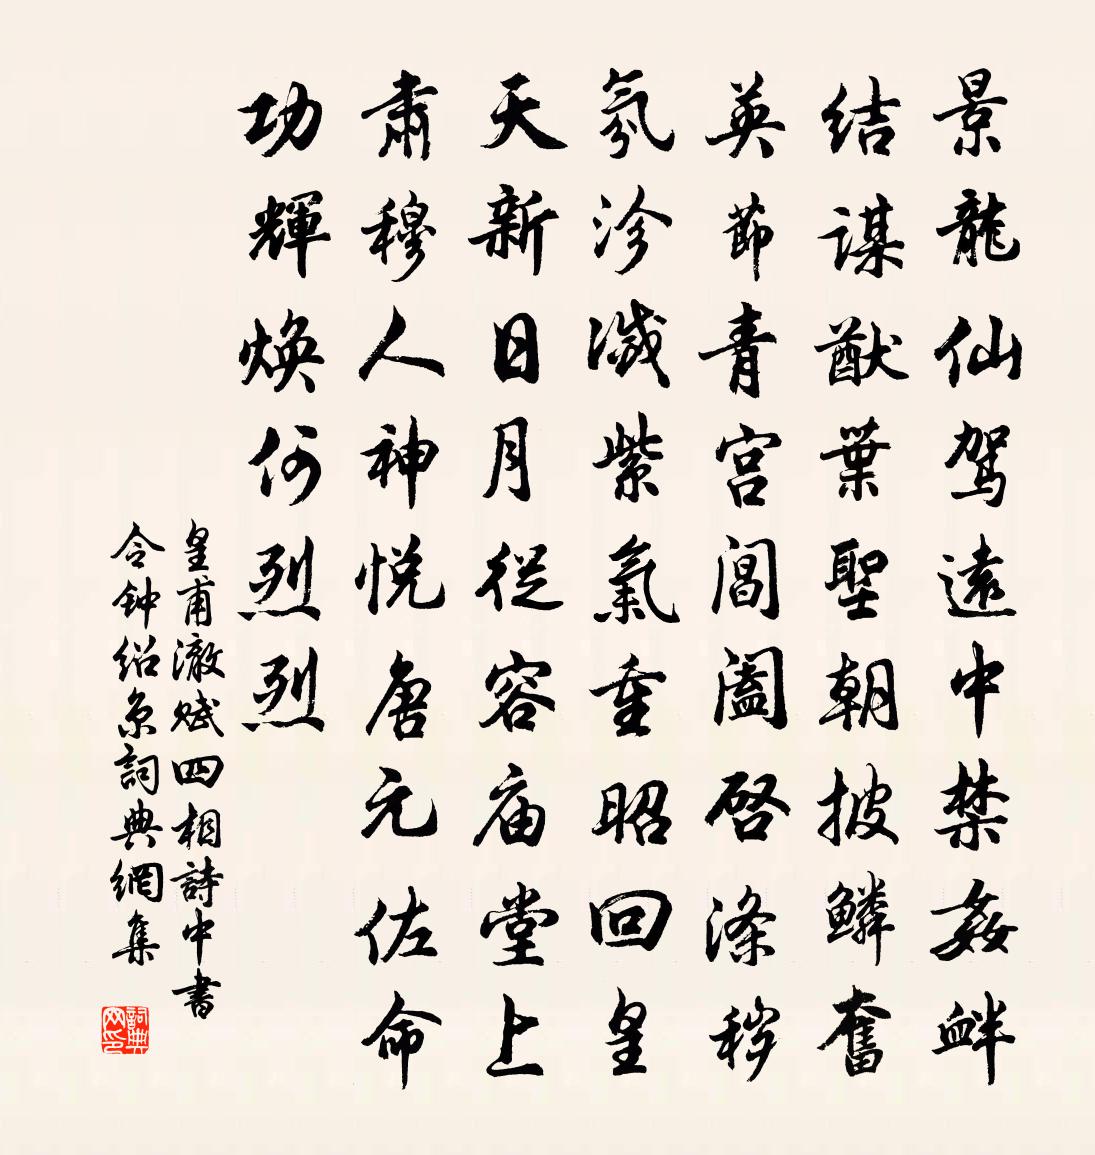 景龍仙駕遠中禁姦衅
结謀猷葉聖朝披鱗奮
英節青宮閶闔啓滌秽
氛沴滅紫氣重昭回皇
天新日月從容庙堂上
肅穆人神悦唐元佐命
功輝焕何烈烈
皇甫澈賦四相詩中書
令钟绍京詞典網集
詞典
网印